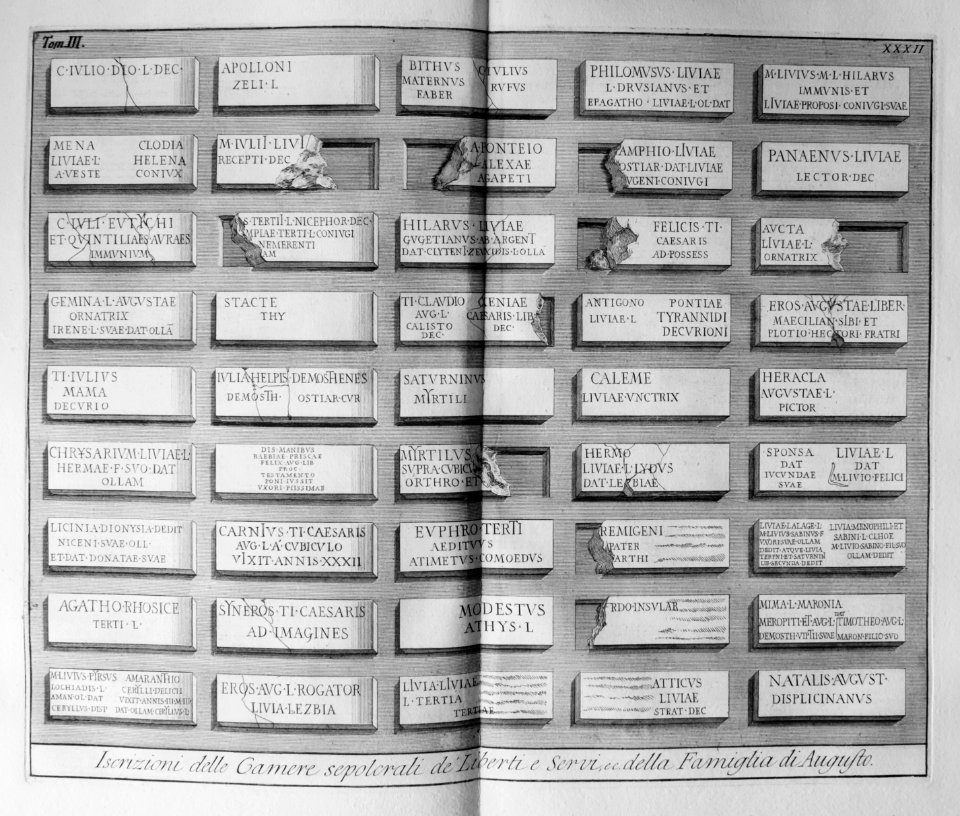 Tom. III.
XXXII
C·IVLIO·DIO·L·DEC·
APOLLONI
ZELI·L
BITHVS
MATERNVS
FABER
C·IVLIVS
RVFVS
PHILOMVSVS·LIVIAE
L·DRVSIANVS·ET
EPAGATHO·LIVIAE·L·OL·DAT
M·LIVIVS·M·L·HILARVS
IMMVNIS·ET
LIVIAE·PROPOSI·CONIVGI·SVAE
MENA
LIVIAE·L·
A·VESTE
CLODIA
HELENA
CONIVX
M·IVLII·LIVI
RECEPTI·DEC
APONTEIO
ALEXAE
AGAPETI
AMPHIO·LIVIAE
OSTIAR·DAT·LIVIAE
VGENI·CONIVGI
PANAENVS·LIVIAE
LECTOR·DEC
C·IVLI·EVTYCHI
ET·QVINTILIAES·AVRAES
IMMVNIVM
S·TERTII·L·NICEPHOR·DEC
MPLAE·TERTI·L·CONIVGI
NEMERENTI
AM
HILARVS·LIVIAE
GVGETIANVS·AB·ARGENT
DAT·CLYTENI·ZEVCIDIS·L·OLLA
FELICIS·TI·
CAESARIS
AD·POSSESS
AVCTA
LIVIAE·L·
ORNATRIX
GEMINA·L·AVGVSTAE
ORNATRIX
IRENE·L·SVAE·DAT·OLLA
STACTE
THY
TI·CLAVDIO
AVG·L·
CALISTO
DEC·
CENIAE
CAESARIS·LIB
DEC·
ANTIGONO
LIVIAE·L
PONTIAE
TYRANNIDI
DECVRIONI
EROS·AVGVSTAE·LIBER·
MAECILIAN·SIBI·ET
PLOTIO·HECTORI·FRATRI
TI·IVLIVS
MAMA
DECVRIO
IVLIA·HELPIS
DEMOSTH·
DEMOSTHENES
OSTIAR·CVR
SATVRNINVS
MYRTILI
CALEME
LIVIAE·VNCTRIX
HERACLA
AVGVSTAE·L·
PICTOR
CHRYSARIVM·LIVIAE·L
HERMAE·F·SVO·DAT
OLLAM
DIS·MANIBVS
BAEBIAE·PRISCAE
FELIX·AVG·LIB
PROC·
TESTAMENTO
PONI·IVSSIT
VXORI·PIISSIMAE
MYRTILVS
SVPRA·CVBICV
ORTHRO·ET
HERMO
LIVIAE·L·LYDVS
DAT·LESBIAE
SPONSA
DAT
IVCVNDAE
SVAE
LIVIAE·L
DAT
M·LIVIO·FELICI
LICINIA·DIONYSIA·DEDIT
NICENI·SVAE·OLL·
ET·DAT·DONATAE·SVAE
CARNIVS·TI·CAESARIS
AVG·L·A·CVBICVLO
VIXIT·ANNIS·XXXII
EVPHRO·TERTI
AEDITVVS
ATIMETVS·COMOEDVS
REMIGENI
PATER
ARTHI
LIVIAE·LALAGE·L·
M·LIVIVS·SABINVS·F
VXORI·SVAE·OLLAM
DEDIT·ATQVE·LIVIA
LIB·SECVNDA·DEDIT
LIVIA·MENOPHILI·ET
SABINI·L·CLHOE
M·LIVIO·SABINO·FIL·SVO
OLLAM·DEDIT
AGATHO·RHOSICE
TERTI·L·
SYNEROS·TI·CAESARIS
AD·IMAGINES
MODESTVS
ATHYS·L
RDO·INSVLAR
MIMA·L·MARONIA
MEROPITI·ET·AVG·L·
DEMOSTH·VIPTII·SVAE
DAT
TIMOTHEO·AVG·L·
MARON·FILIO·SVO
M·LIVIVS·PIRSVS
LOCHIADIS·L·
AMAN·OL·DAT
CERYLLVS·DISP
AMARANTHO
CERYLLI·DELICII
VIXIT·ANNIS·III·M·III
DAT·OLLAM·CERYLLVS·L·
EROS·AVG·L·ROGATOR
LIVIA·LEZBIA
LIVIA·LIVIAE
L·TERTIA
TERTIAE
ATTICVS
LIVIAE
STRAT·DEC
NATALIS·AVGVST·
DISPLICINANVS
Iscrizioni delle Camere sepolcrali de' Liberti e Servi, ec. della Famiglia di Augusto.